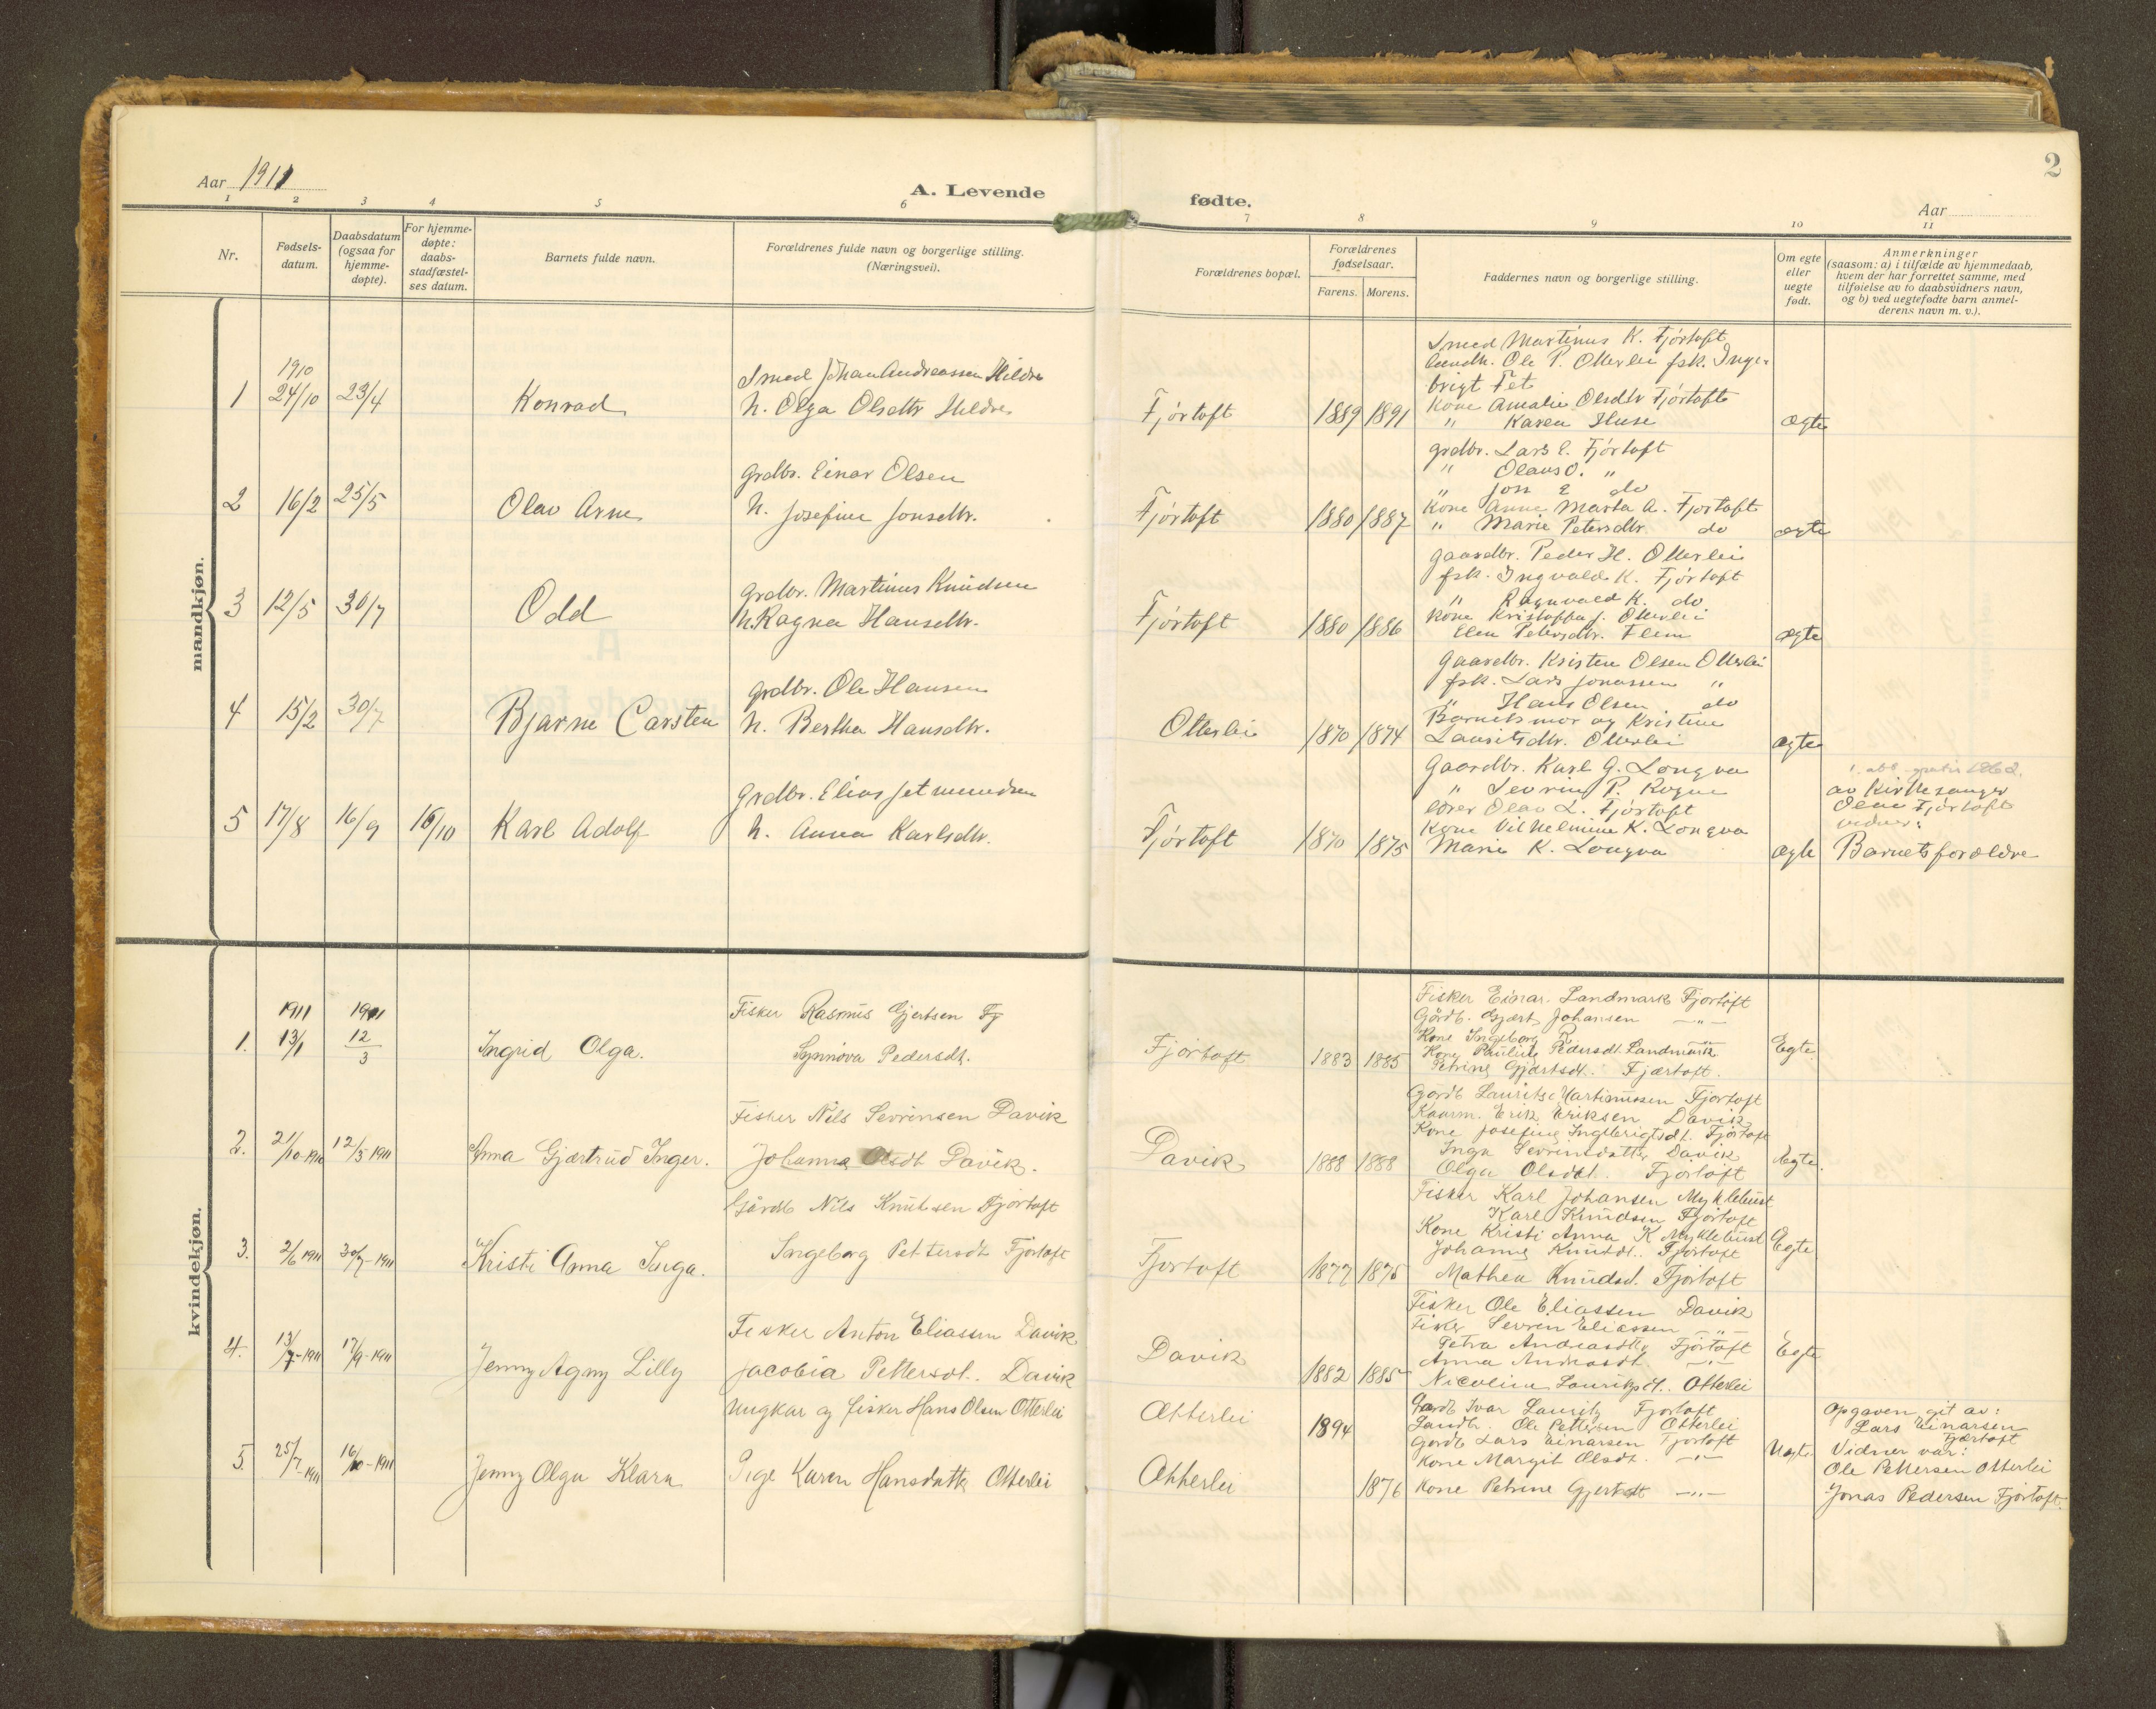 2
Aar 1911
A. Levende
fødte.
Aar
1 2 3 4 5 6 7 8 9 10 11
Nr.
Fødsels-
datum.
Daabsdatum
(ogsaa for
hjemme-
døpte).
For hjemme-
døpte:
daabs-
stadfæstel-
ses datum.
Barnets fulde navn.
Forældrenes fulde navn og borgerlige stilling.
(Næringsvei).
Forældrenes bopæl.
Forældrenes
fødselsaar.
Farens. Morens.
Faddernes navn og borgerlige stilling.
Om egte
eller
uegte
født.
Anmerkninger
(saasom: a) i tilfælde av hjemmedaab,
hvem der har forrettet samme, med
tilføielse av to daabsvidners navn,
og b) ved uegtefødte barn anmel-
derens navn m. v.).
mandkjøn.
1
1910
24/10
23/4
Konrad
Smed Johan Andreassen Hildre
h. Olga Olsdtr Hildre
Fjørtoft
1889 1891
Smed Martinus K. Fjørtoft
Ole P. Otterlei fsk. Inge-
brigt Fet
Kone Amalie Olsdtr Fjørtoft
" Karen Huse
ægte
2
16/2
25/5
Olav Arne
grdbr. Einar Olsen
h. Josefine Jonsdtr.
Fjørtoft
1880 1887
grdbr. Lars E. Fjørtoft
" Olaus O. "
" Jon E do
Kone Anne Marta A. Fjørtoft
" Marie Petersdtr. do
ægte
3
12/5
30/7
Odd
grdbr. Martinus Knudsen
h. Ragna Hansdtr.
Fjørtoft
1880 1886
gaardbr. Peder H. Otterlei
fsk. Ingvald K. Fjørtoft
" Ragnvald K. do
Kone Kristoffa J. Otterlei
Elen Petersdtr. Flem
ægte
4
15/2
30/7
Bjarne Carsten
grdbr. Ole Hansen
h. Berthe Hansdtr.
Otterlei
1870 1874
gaardbr. Kristen Olsen Otterlei
fsk. Lars Jonassen "
" Hans Olsen do
Barnets mor og Kristine
Lauritsdtr. Otterlei
ægte
5
17/8
16/9
15/10
Karl Adolf
grdbr. Elias Jetmundsen
h. Anna Karlsdtr.
Fjørtoft
1870 1875
gaardbr. Karl G. Longva
" Sevrin P. Rogne
lærer Olav L. Fjørtoft
Kone Vilhelmine K. Longva
Marie K. Longva
ægte
av Kirkesanger
Olav Fjørtoft
vidner:
Barnets forældre
kvindekjøn.
1.
1911
13/1
1911
12/3
Ingrid Olga.
Fisker Rasmus Gjertsen Fj
Synnöva Pedersdt.
Fjørtoft
1883 1885
Fisker Einar Landmark Fjortoft
Gårdb. Gjert Johansen —"—
Kone Ingeborg R. —"—
Kone Pauline Pedersdt. Landmark
Petrine Gjertsdt. Fjærtoft.
Egte
2.
21/10-1910
12/3-1911
Anna Gjærtrud Inger.
Fisker Nils Sevrinsen Davik
Johanna Olsdt Davik.
Davik
1888 1888
Gårdb Laurits Martinussen Fjortoft
Kaarm. Erik Eriksen Davik
Kone Josefine Ingebrigtsdt. Fjørtoft
Inga Sevrinsdatter Davik
Olga Olsdt. Fjørtoft
Ægte.
3.
2/6 1911
30/7-1911
Kristi Anna Inga.
Gårdb Nils Knudsen Fjørtoft
Ingeborg Pettersdt Fjørtoft
Fjortoft
1877 1875
Fisker Karl Johansen Myklebust
Karl Knudsen Fjørtoft
Kone Kristi Anna K Myklebust
Johanne Knutdt. Fjørtoft
Mathea Knudsd. Fjørtoft
Egte
4.
13/7-1911
17/9-1911
Jenny Agny Lilly
Fisker Anton Eliassen Davik
Jacobia Pettersdt. Davik
Davik
1882 1885
Fisker Ole Eliassen Davik
Fisker Sevren Eliassen —"—
Petra Andreasdtr Fjørtoft
Anna Andreasdt. —"—
Nicolina Lauritzdt. Otterlei
Egte
5.
25/7-1911
16/10-1911
Jenny Olga Klara
Ungkar og fisker Hans Olsen Otterlei
Pige Karen Hansdatter Otterlei
Otterlei
Otterlei
1894
1876
Gårdb Ivar Lauritz Fjortoft
Landh. Ole Pettersen Otterlei
Gårdb Lars Einarsen Fjortoft
Kone Margit Olsdt. —"—
Kone Petrine Gjertsdt —"—
Uegte
Opgaven git av:
Lars Einarsen
Fjærtoft
Vidner var:
Ole Pettersen Otterlei
Jonas Pedersen Fjørtoft.